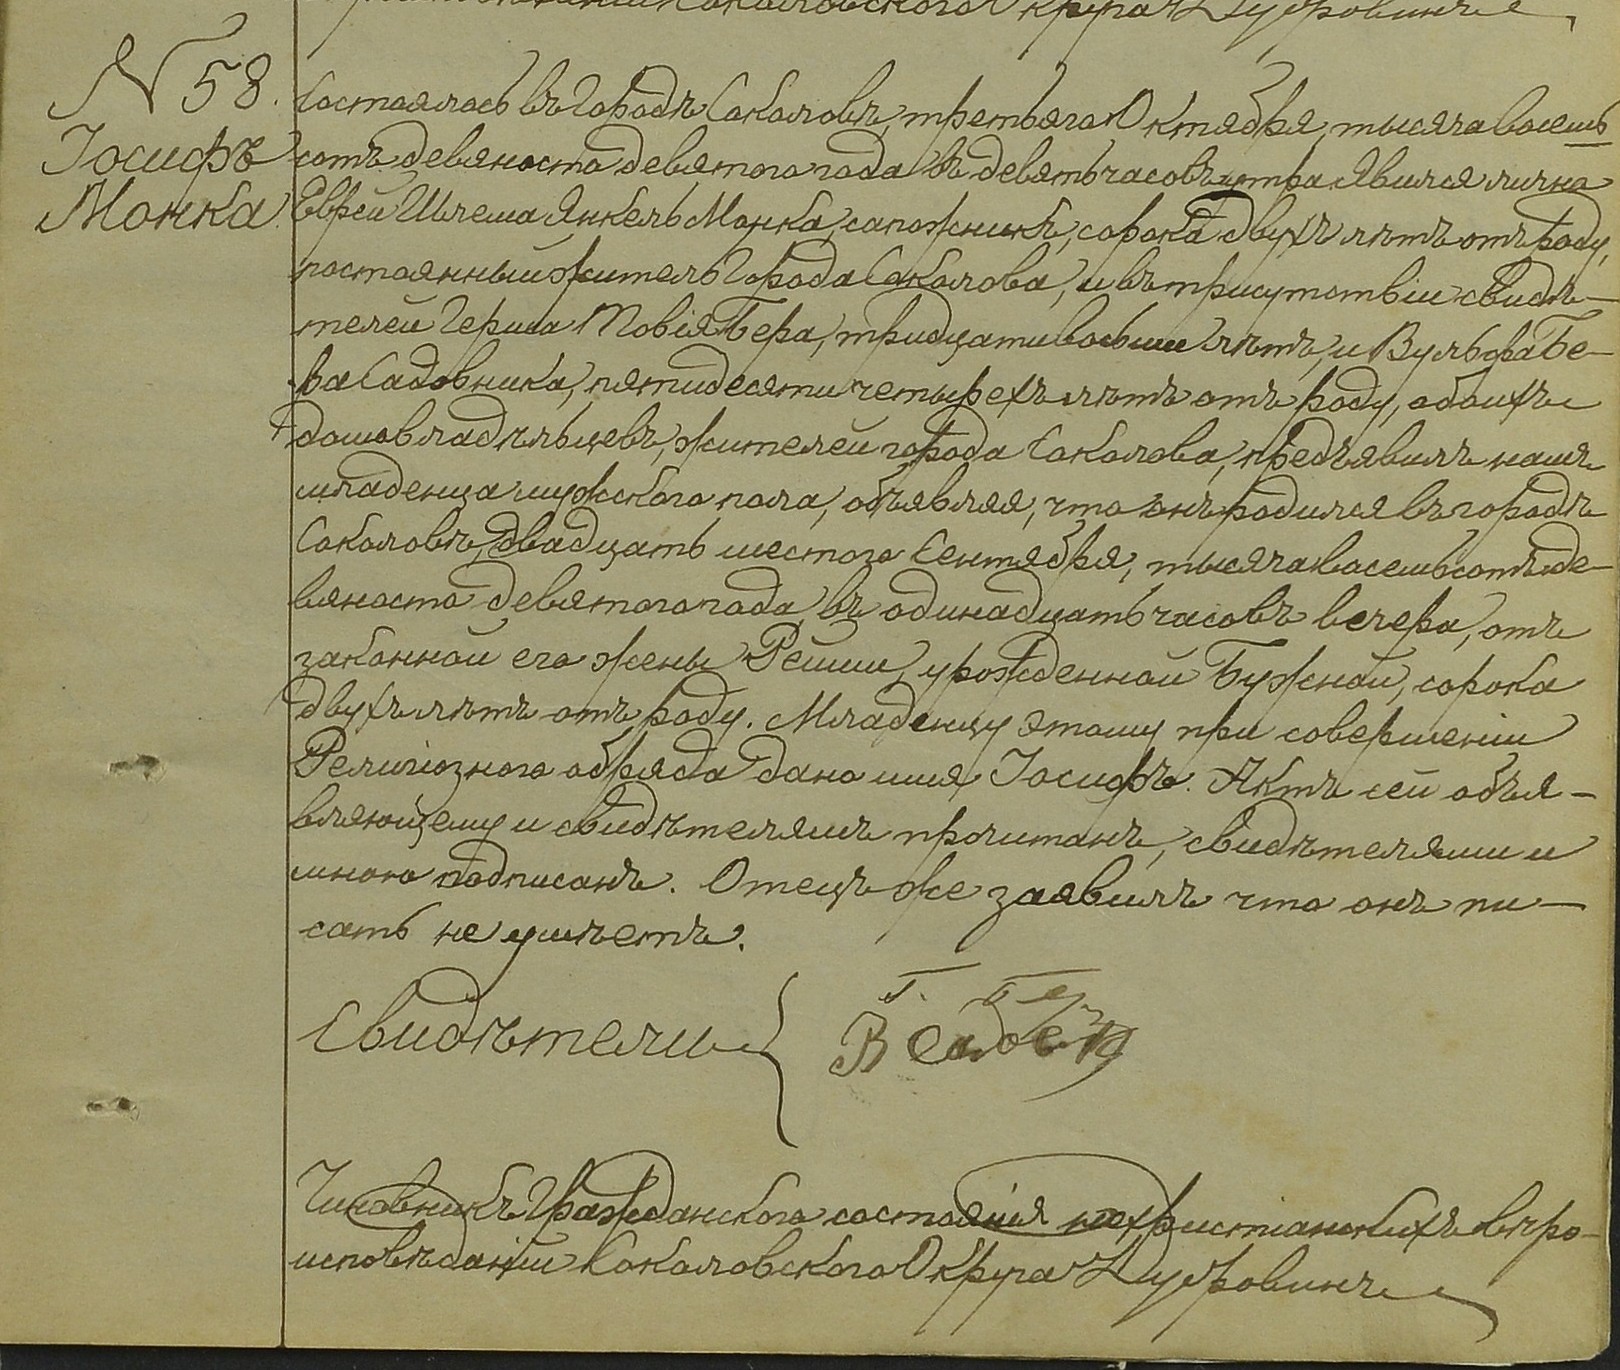 Соколовского Округа
N 58.
Іосифъ
Монка
Состоялось въ городѣ Соколовѣ, третьяго Октября, тысяча восемь
сотъ девяносто девятого года въ девять часовъ утра явился лично
Еврей Шлема Янкель Монка, сапожникъ, сорока двухъ лѣтъ отъ роду,
постоянный житель города Соколова, и въ присутствіи свидѣ-
телей Герша Товія Бера, тридцати восьми лѣтъ, и Вульфа Бе-
ра Садовника, пятидесяти четырехъ лѣтъ отъ роду, обоихъ
домовладѣльцевъ, жителей города Соколова, предъявилъ намъ
младенца мужского пола, объявляя, что онъ родился въ городѣ
Соколовѣ, двадцать шестого Сентября, тысяча восемьсотъ де-
вяносто девятого года, въ одинадцать часовъ вечера, отъ
законной его жены Рейши, урожденной Бужной, сорока
двухъ лѣтъ отъ роду. Младенцу этому при совершеніи
Религіозного обряда дано имя Іосифъ. Актъ сей объя-
вляющему и свидѣтелямъ прочитанъ, свидѣтелями и
мною подписанъ. Отецъ же заявилъ что онъ пи-
сать не умѣетъ.
Свидѣтели
Г. Бер
В
Чиновникъ Гражданского состоянія нехристіанскихъ вѣро-
исповѣданій Соколовского Округа